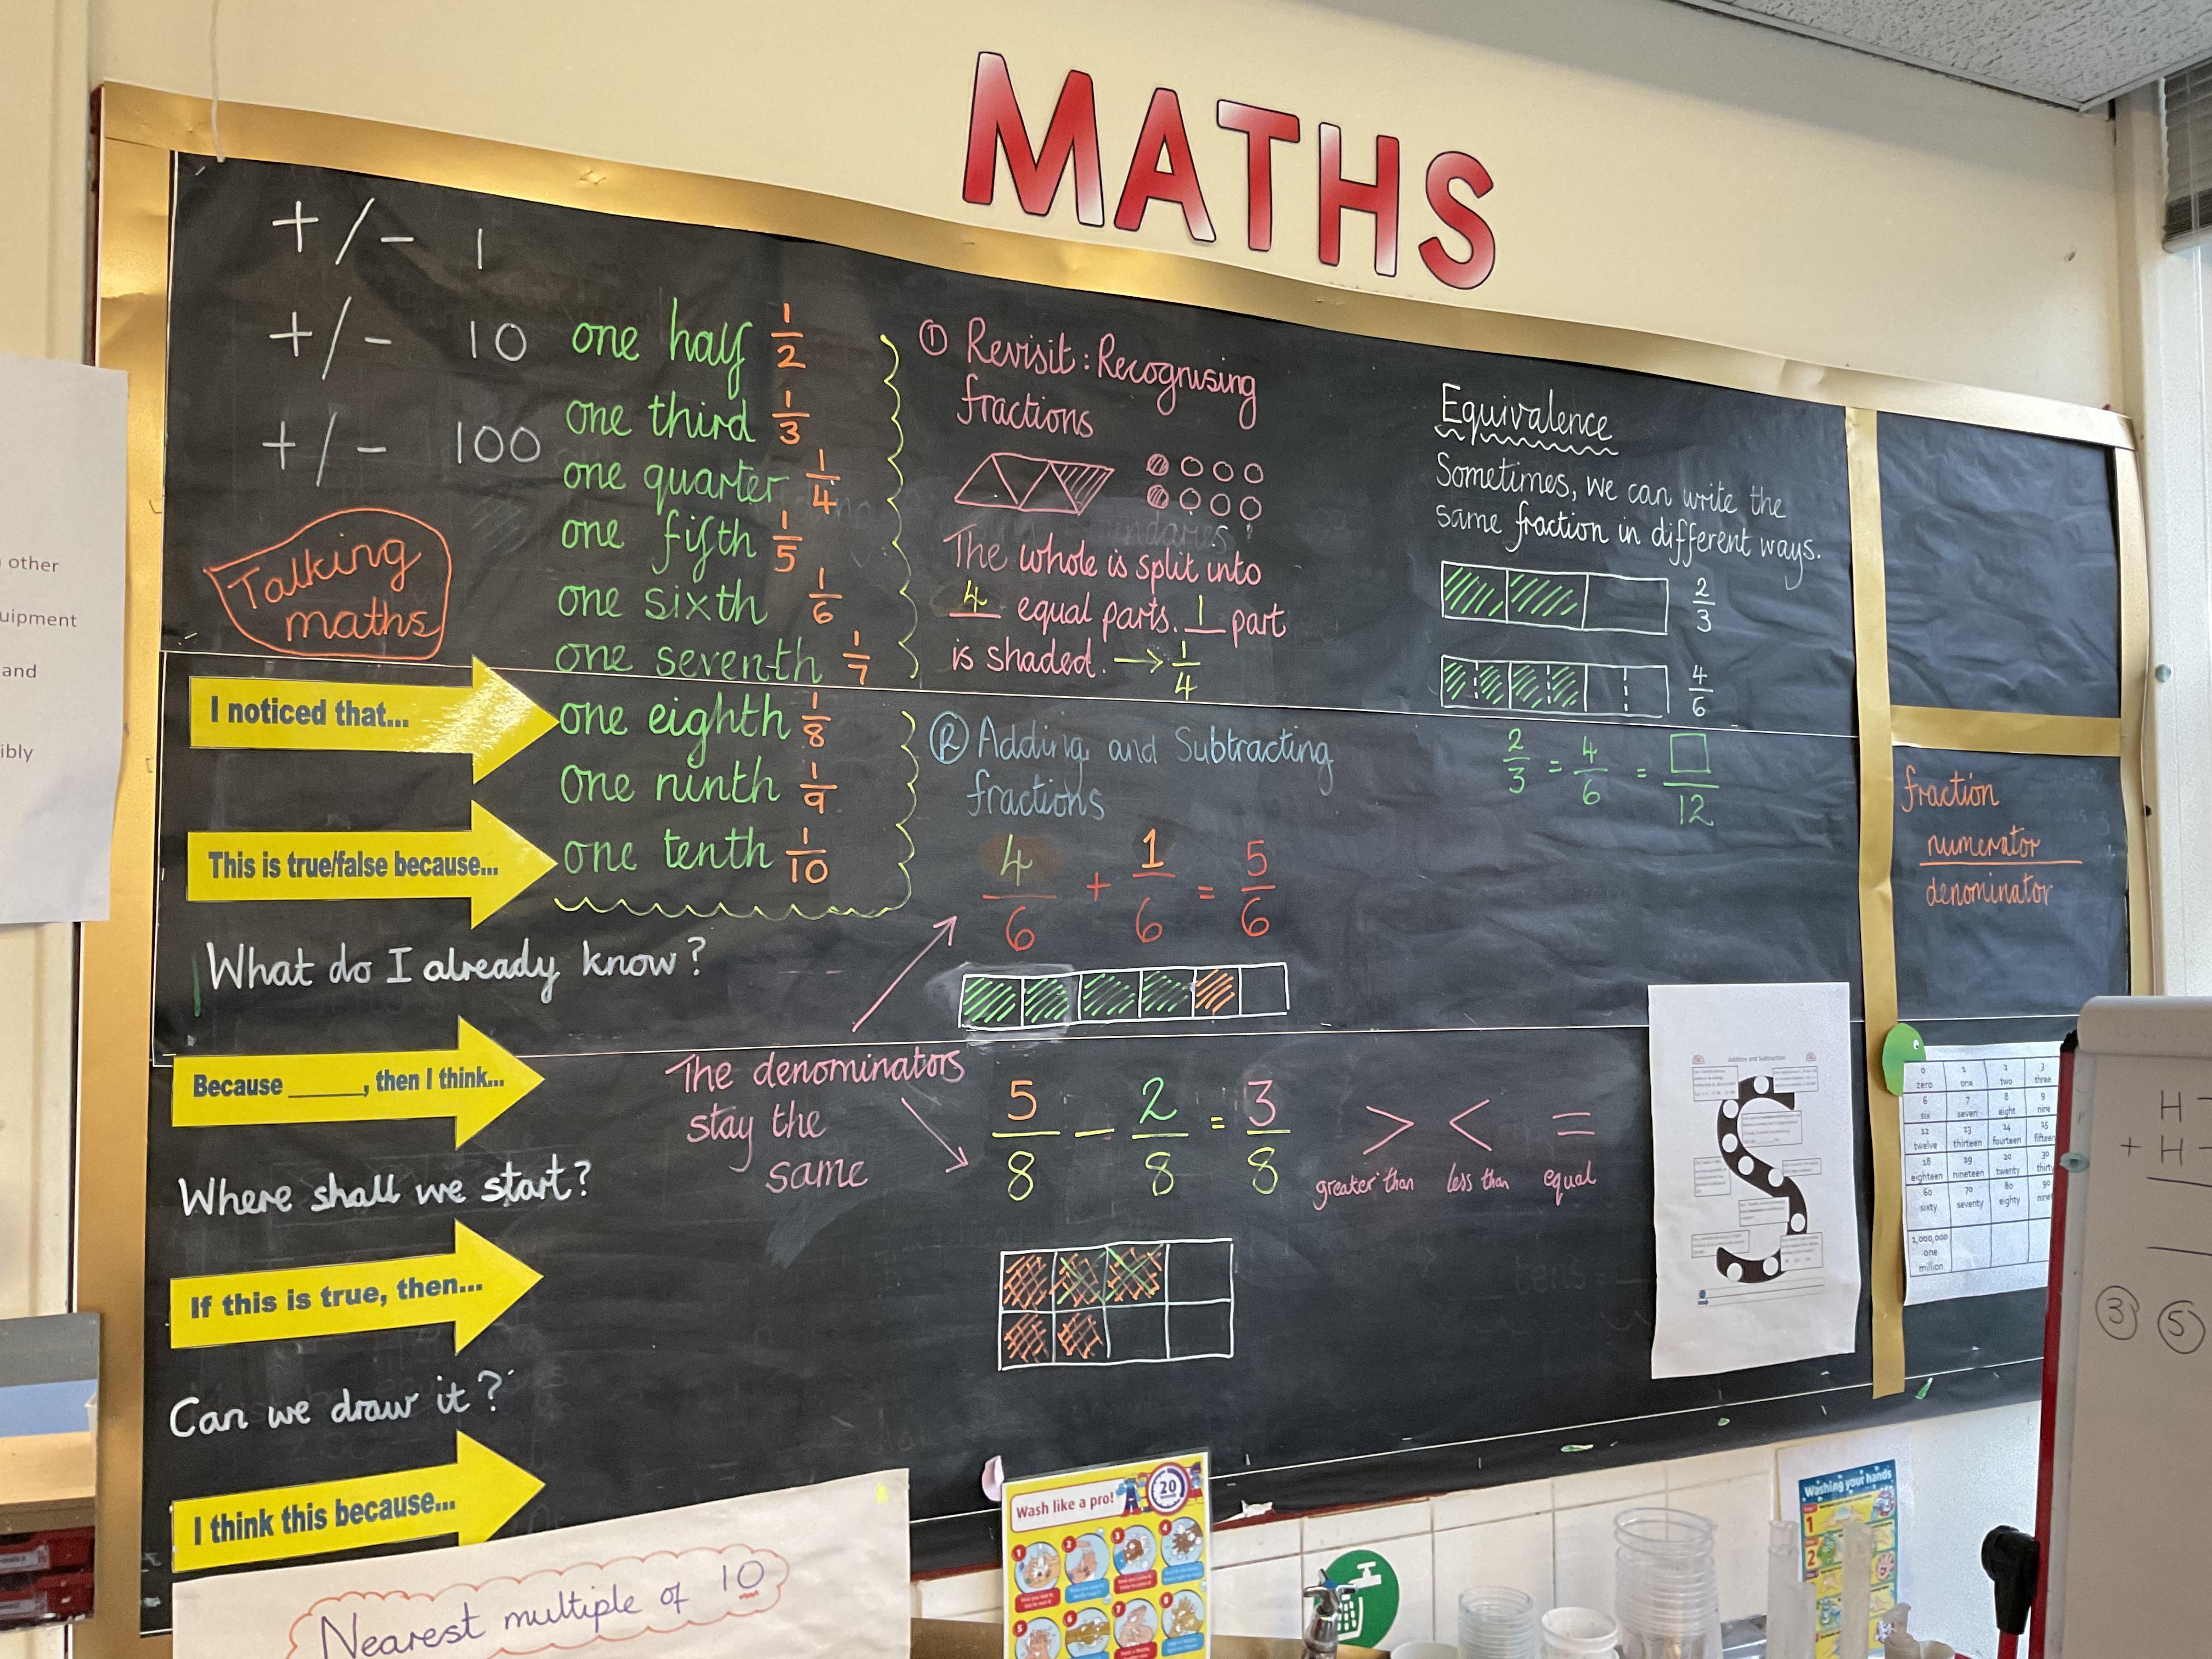 MATHS
+/- 1
+/- 10
+/- 100
Talking
maths
I noticed that...
This is true/false because...
What do I already know?
Because _____, then I think...
Where shall we start?
If this is true, then...
Can we draw it?
I think this because...
Nearest multiple of 10
one half 1/2
one third 1/3
one quarter 1/4
one fifth 1/5
one sixth 1/6
one seventh 1/7
one eighth 1/8
one ninth 1/9
one tenth 1/10
① Revisit: Recognising
fractions
The whole is split into
4 equal parts. 1 part
is shaded. → 1/4
Ⓡ Adding and Subtracting
fractions
4/6 + 1/6 = 5/6
The denominators
stay the
same
5/8 - 2/8 = 3/8
> < =
greater than less than equal
Equivalence
Sometimes, we can write the
same fraction in different ways.
2/3
4/6
2/3 = 4/6 = □/12
fraction
numerator
denominator
Addition and Subtraction
0 1 2 3
zero one two three
6 7 8 9
six seven eight nine
12 13 14 15
twelve thirteen fourteen fifteen
18 19 20 30
eighteen nineteen twenty thirty
60 70 80 90
sixty seventy eighty
1,000,000
one
million
H
+ H
③ ⑤
other
uipment
and
ibly
Wash like a pro!
20
1 2 3 4
5 6 7 8
Washing your hands
1
2